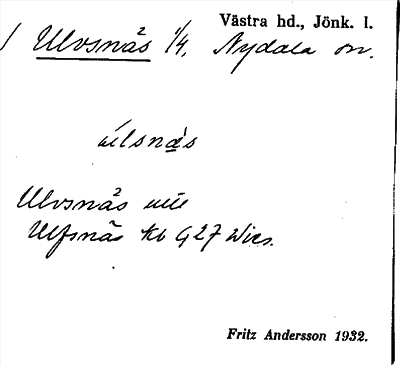 Västra hd., Jönk. l.
Ulvsnäs 1/4, Nydala sn.
ùlsnä̀s
Ulvsnäs
Ulfsnäs kb G27 Wies.
Fritz Andersson 1932.